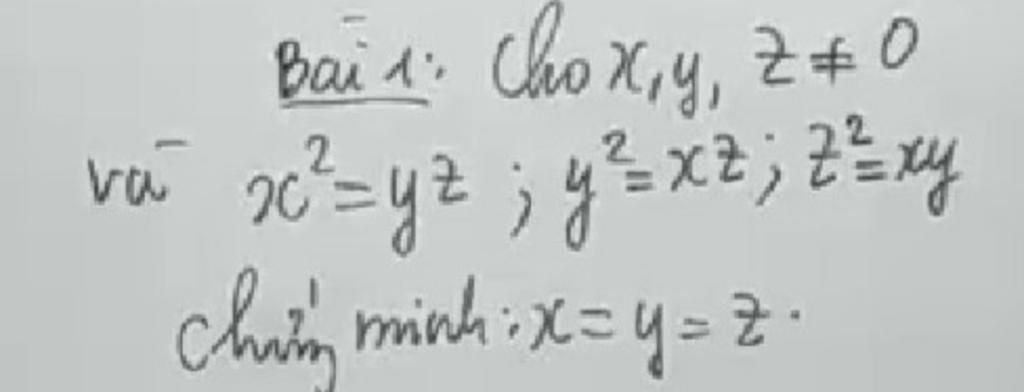 Bài 1: Cho x, y, z ≠ 0
và x² = yz ; y² = xz ; z² = xy
Chứng minh : x = y = z.